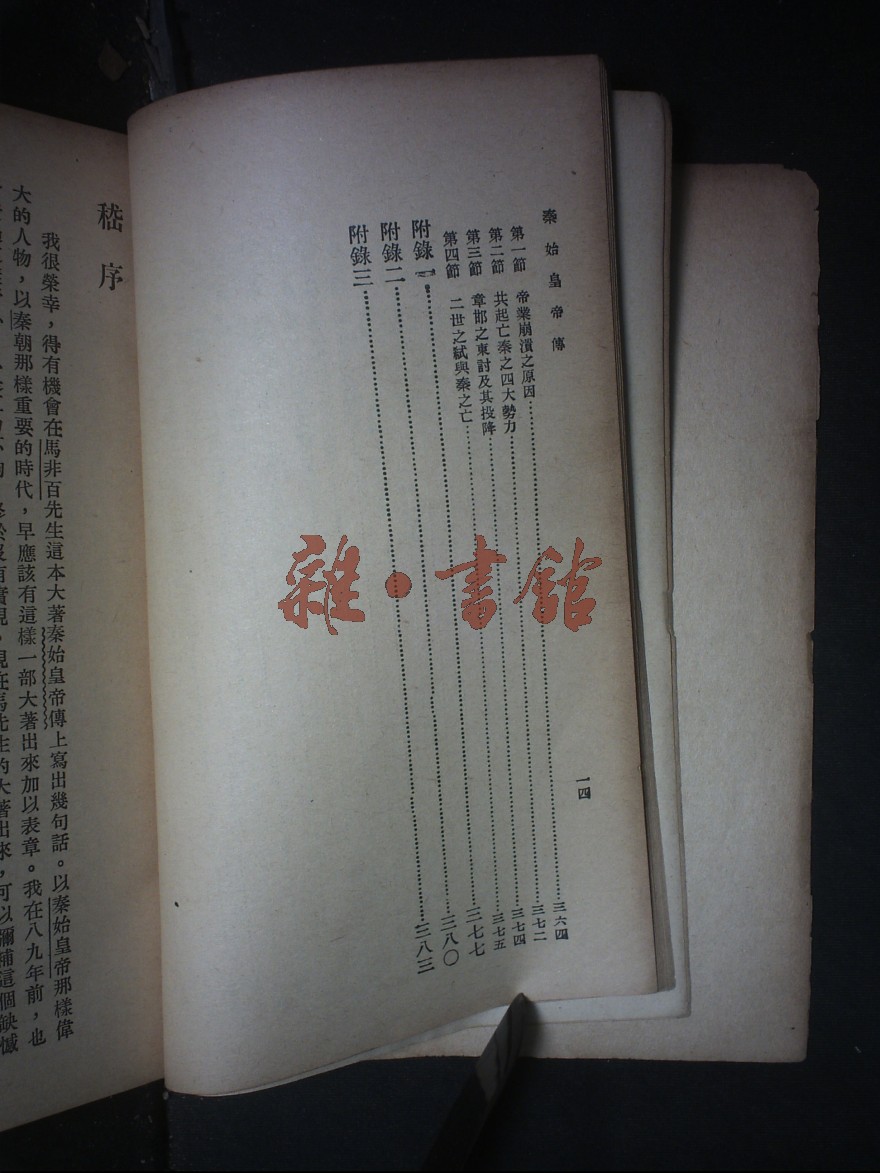 秦始皇帝傳
一四
第一節 帝業崩潰之原因……三六四
第二節 共起亡秦之四大勢力……三七二
第三節 章邯之東討及其投降……三七四
第四節 二世之弒與秦之亡……三七五
附錄一……三七七
附錄二……三八〇
附錄三……三八三
嵇序
我很榮幸，得有機會在馬非百先生這本大著秦始皇帝傳上寫出幾句話。以秦始皇帝那樣偉
大的人物，以秦朝那樣重要的時代，早應該有這樣一部大著出來加以表章。我在八九年前，也
終於沒有實現。現在馬先生的大著出來，可以彌補這個缺憾
雜·書館